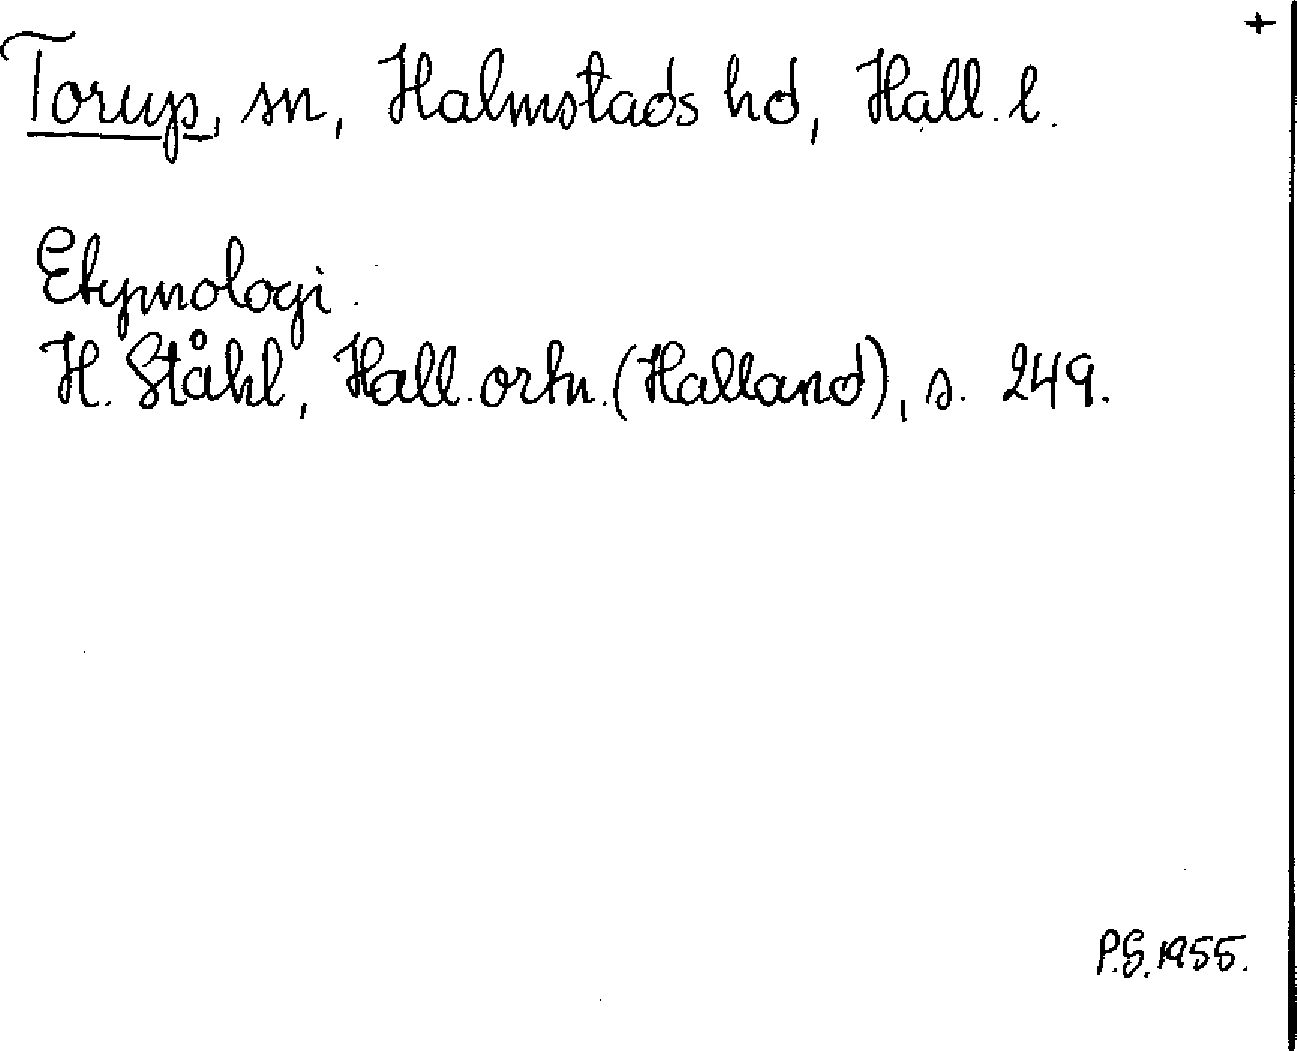 +
Torup, sn, Halmstads hd, Hall. l.
Etymologi.
H. Ståhl, Hall. ortn. (Halland), s. 249.
P.G. 1955.